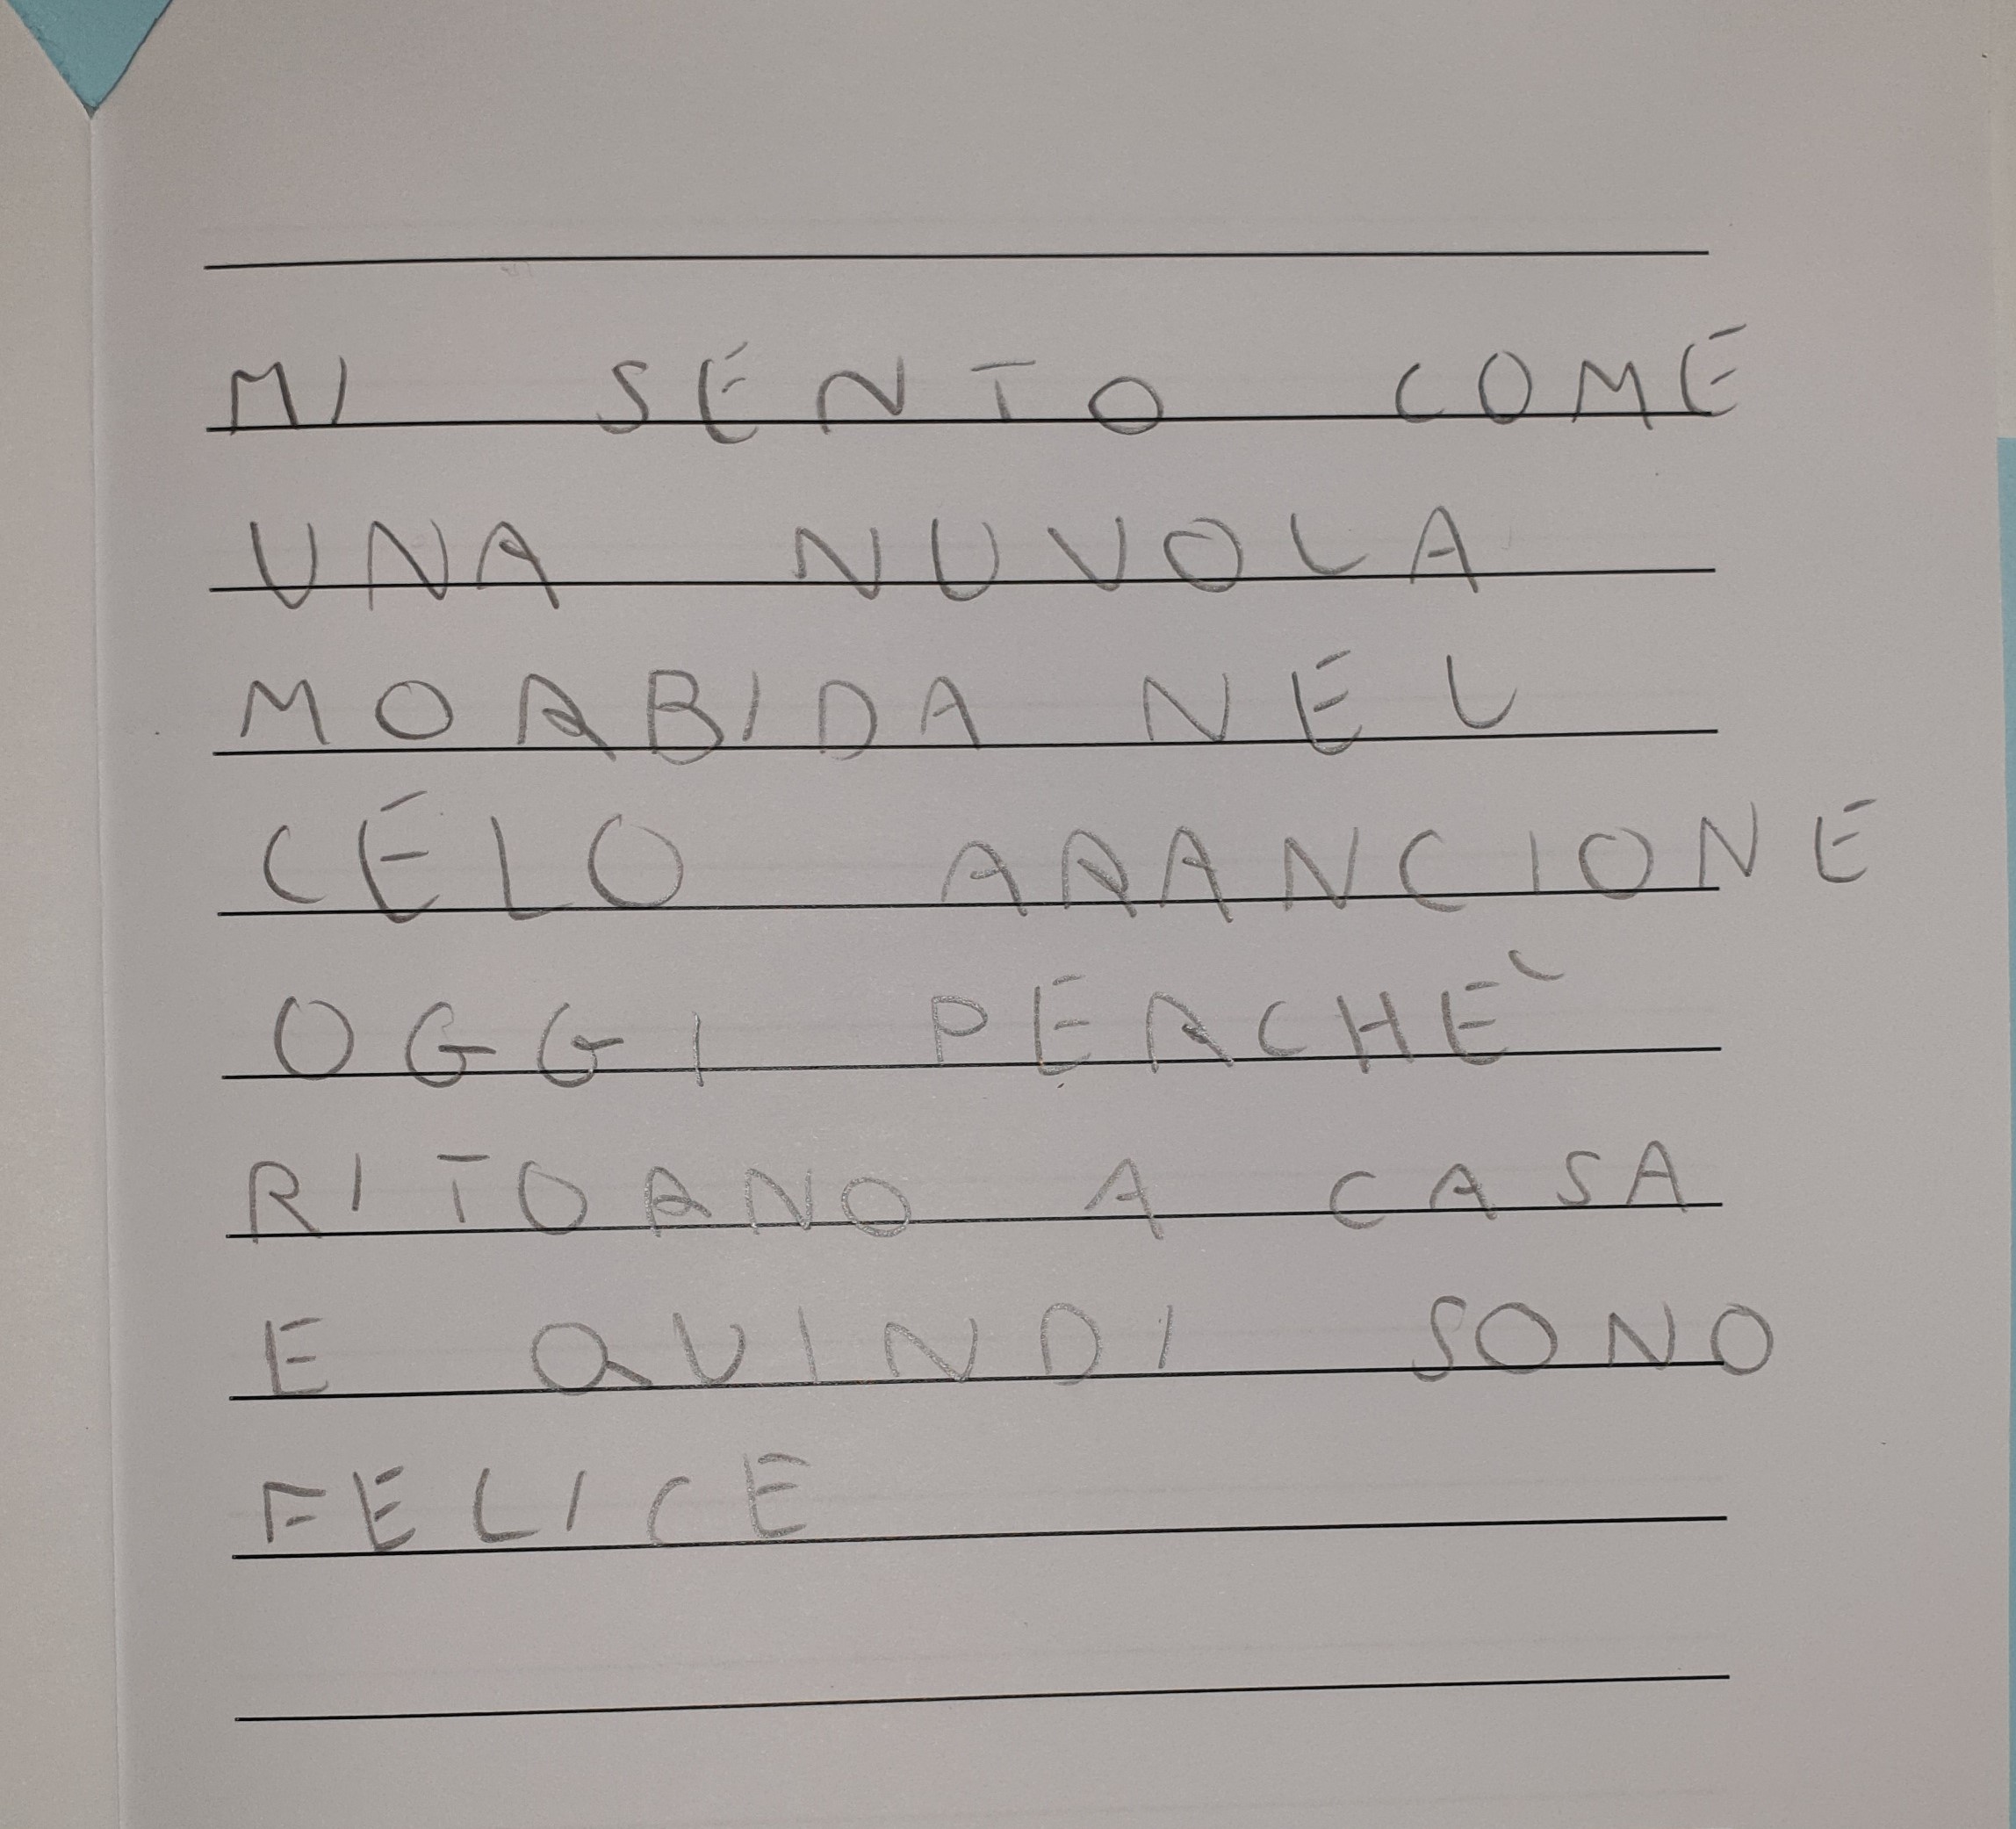 MI SENTO COME
UNA NUVOLA
MORBIDA NEL
CELO ARANCIONE
OGGI PERCHÈ
RITORNO A CASA
E QUINDI SONO
FELICE